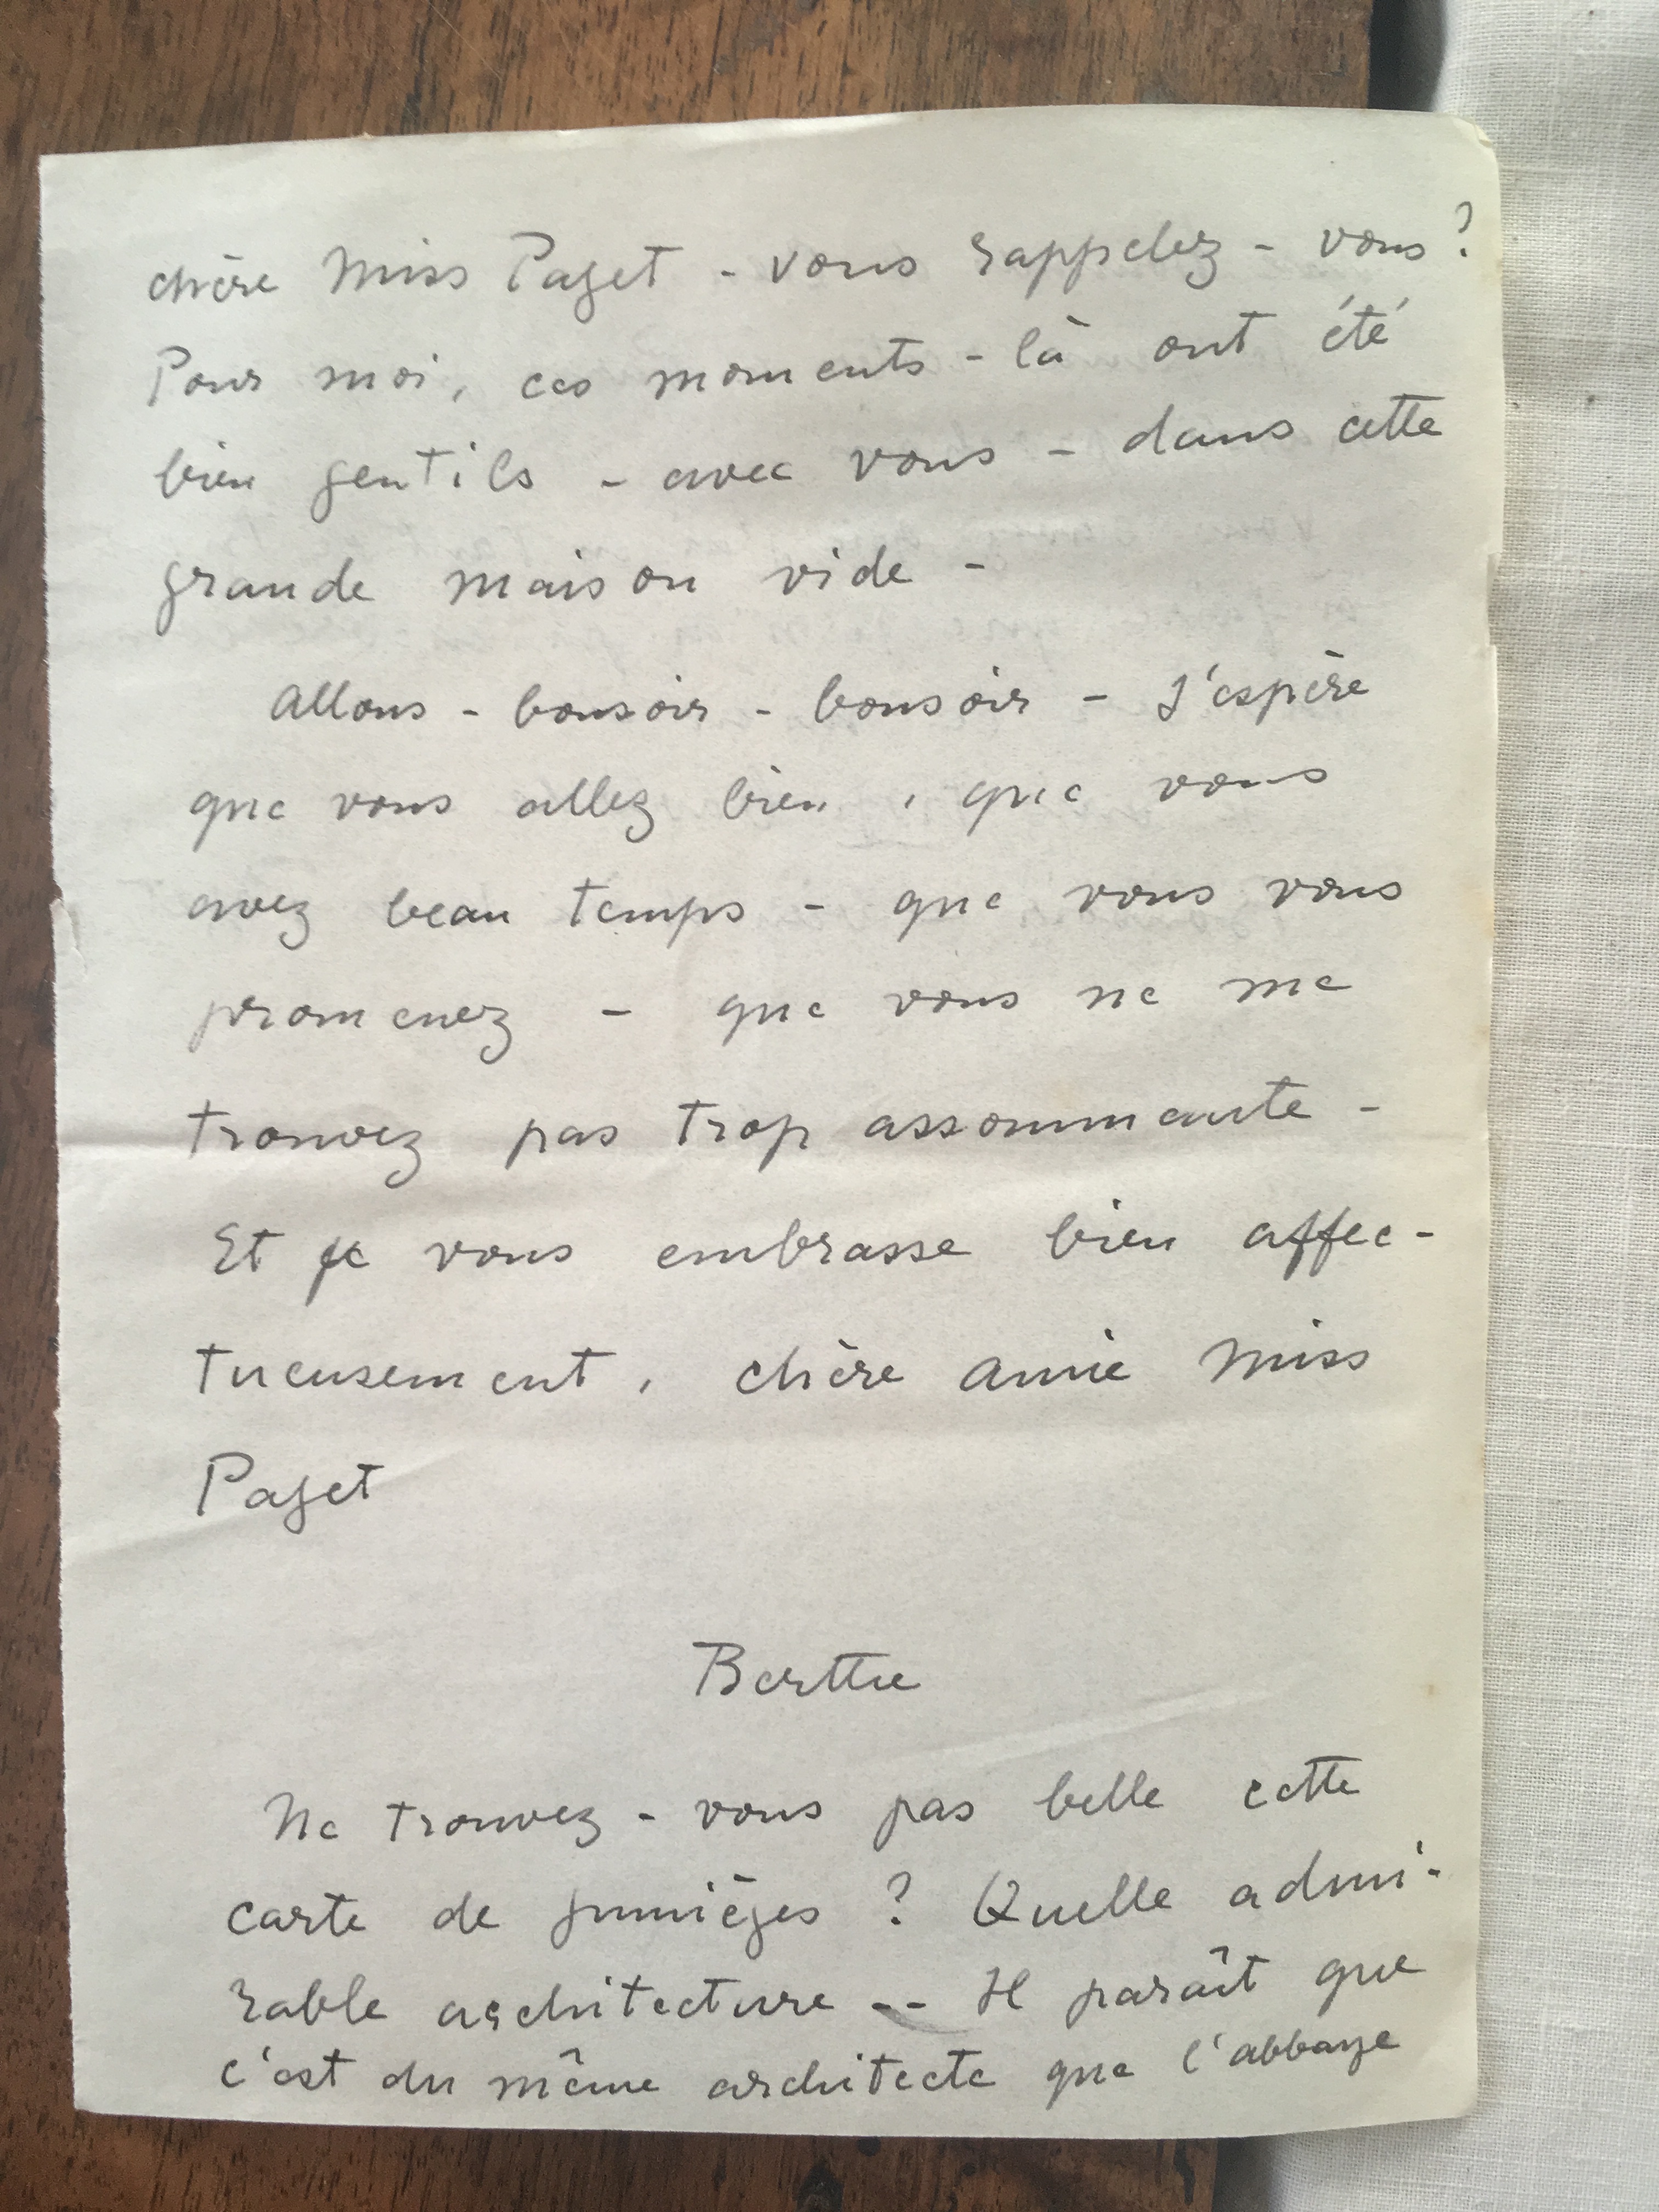 chère Miss Paget - vous rappelez - vous ?
Pour moi, ces moments - là ont été
bien gentils - avec vous - dans cette
grande maison vide -
Allons - bonsoir - bonsoir - J'espère
que vous allez bien, que vous
avez beau temps - que vous vous
promenez - que vous ne me
trouvez pas trop assommante -
Et je vous embrasse bien affec-
tueusement, chère amie Miss
Paget
Berthe
Ne trouvez - vous pas belle cette
carte de Jumièges ? Quelle admi-
rable architecture -- Il paraît que
c'est du même architecte que l'abbaye